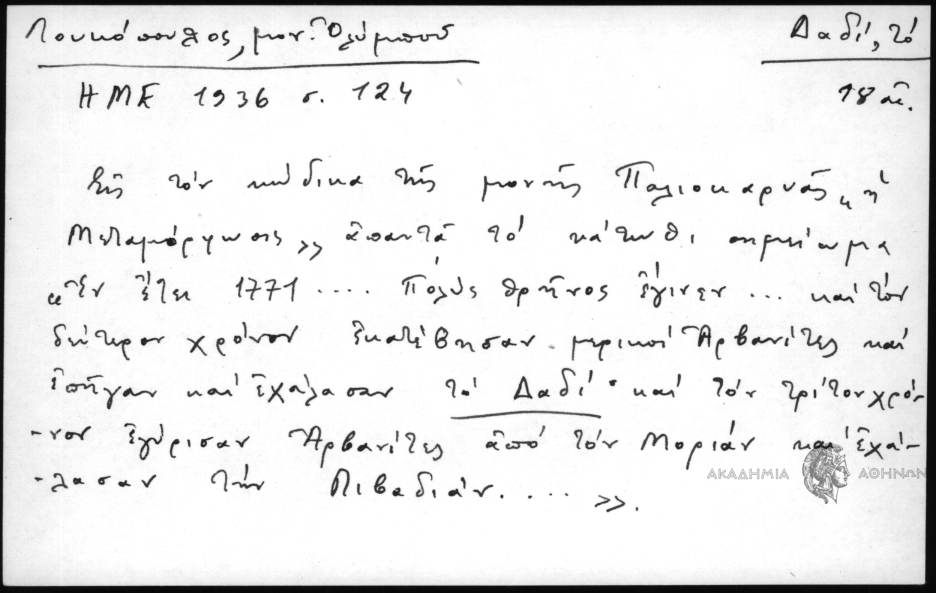 Λουκόπουλος, μον. Ὀλύμπου
Δαδί, τό
ΗΜΕ 1936 σ. 124
18 αἰ.
Εἰς τόν κώδικα τῆς μονῆς Παλιοκαρυᾶς «ἡ
Μεταμόρφωσις» ἀπαντᾶ τό κάτωθι σημείωμα
«Ἐν ἔτει 1771 .... Πολύς θρῆνος ἔγινεν ... καί τόν
δεύτερον χρόνον ἐκατέβησαν μερικοί Ἀρβανίτες καί
ἐπῆγαν καί ἐχάλασαν τό Δαδί· καί τόν τρίτον χρό-
-νον ἐγύρισαν Ἀρβανίτες ἀπό τόν Μοριάν καί ἐχά-
-λασαν τήν Λιβαδιάν. ... ».
ΑΚΑΔΗΜΙΑ ΑΘΗΝΩΝ